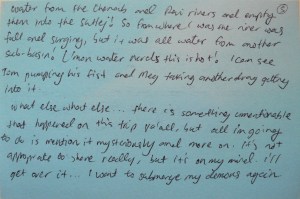 ③
water from the Chenab and Ravi rivers and empty
them into the Sutlej! So from where I was the river was
full and surging, but it was all water from another
sub-basin! (Umm water nerds this is hot! I can see
Tom pumping his fist and Meg taking another drag getting
into it.
What else what else... there is something unmentionable
that happened on this trip ya'all, but all i'm going
to do is mention it mysteriously and move on. It's not
appropriate to share really, but it's on my mind. I'll
get over it... I want to submerge my demons again